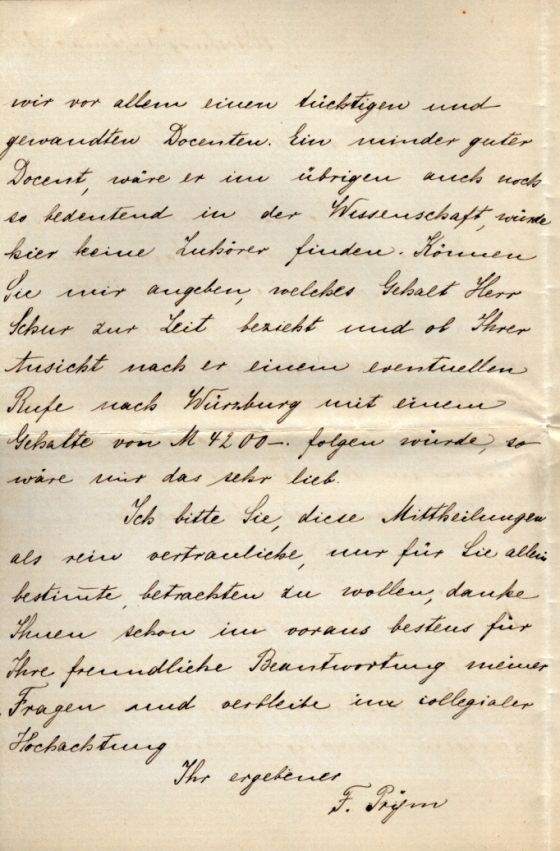 wir vor allem einen tüchtigen und
gewandten Docenten. Ein minder guter
Docent, wäre er im übrigen auch noch
so bedeutend in der Wissenschaft, würde
hier keine Zuhörer finden. Können
Sie mir angeben, welches Gehalt Herr
Schur zur Zeit bezieht und ob Ihrer
Ansicht nach er einem eventuellen
Rufe nach Würzburg mit einem
Gehalte von M 4200–. folgen würde, so
wäre mir das sehr lieb.
Ich bitte Sie, diese Mittheilungen
als rein vertrauliche, nur für Sie allein
bestim̄te, betrachten zu wollen, danke
Ihnen schon im voraus bestens für
Ihre freundliche Beantwortung meiner
Fragen und verbleibe in collegialer
Hochachtung
Ihr ergebener
F. Prym